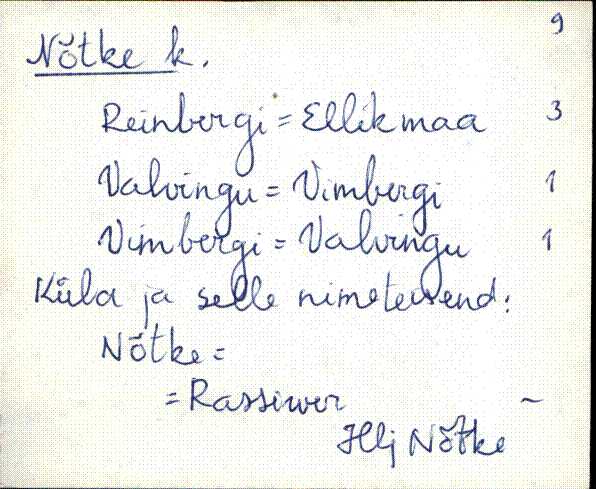 9
Nõtke k.
Reinbergi = Ellikmaa 3
Valvingu = Vimbergi 1
Vimbergi = Valvingu 1
Küla ja selle nimeteisend:
Nõtke =
= Rassiwer ~
Hlj Nõtke